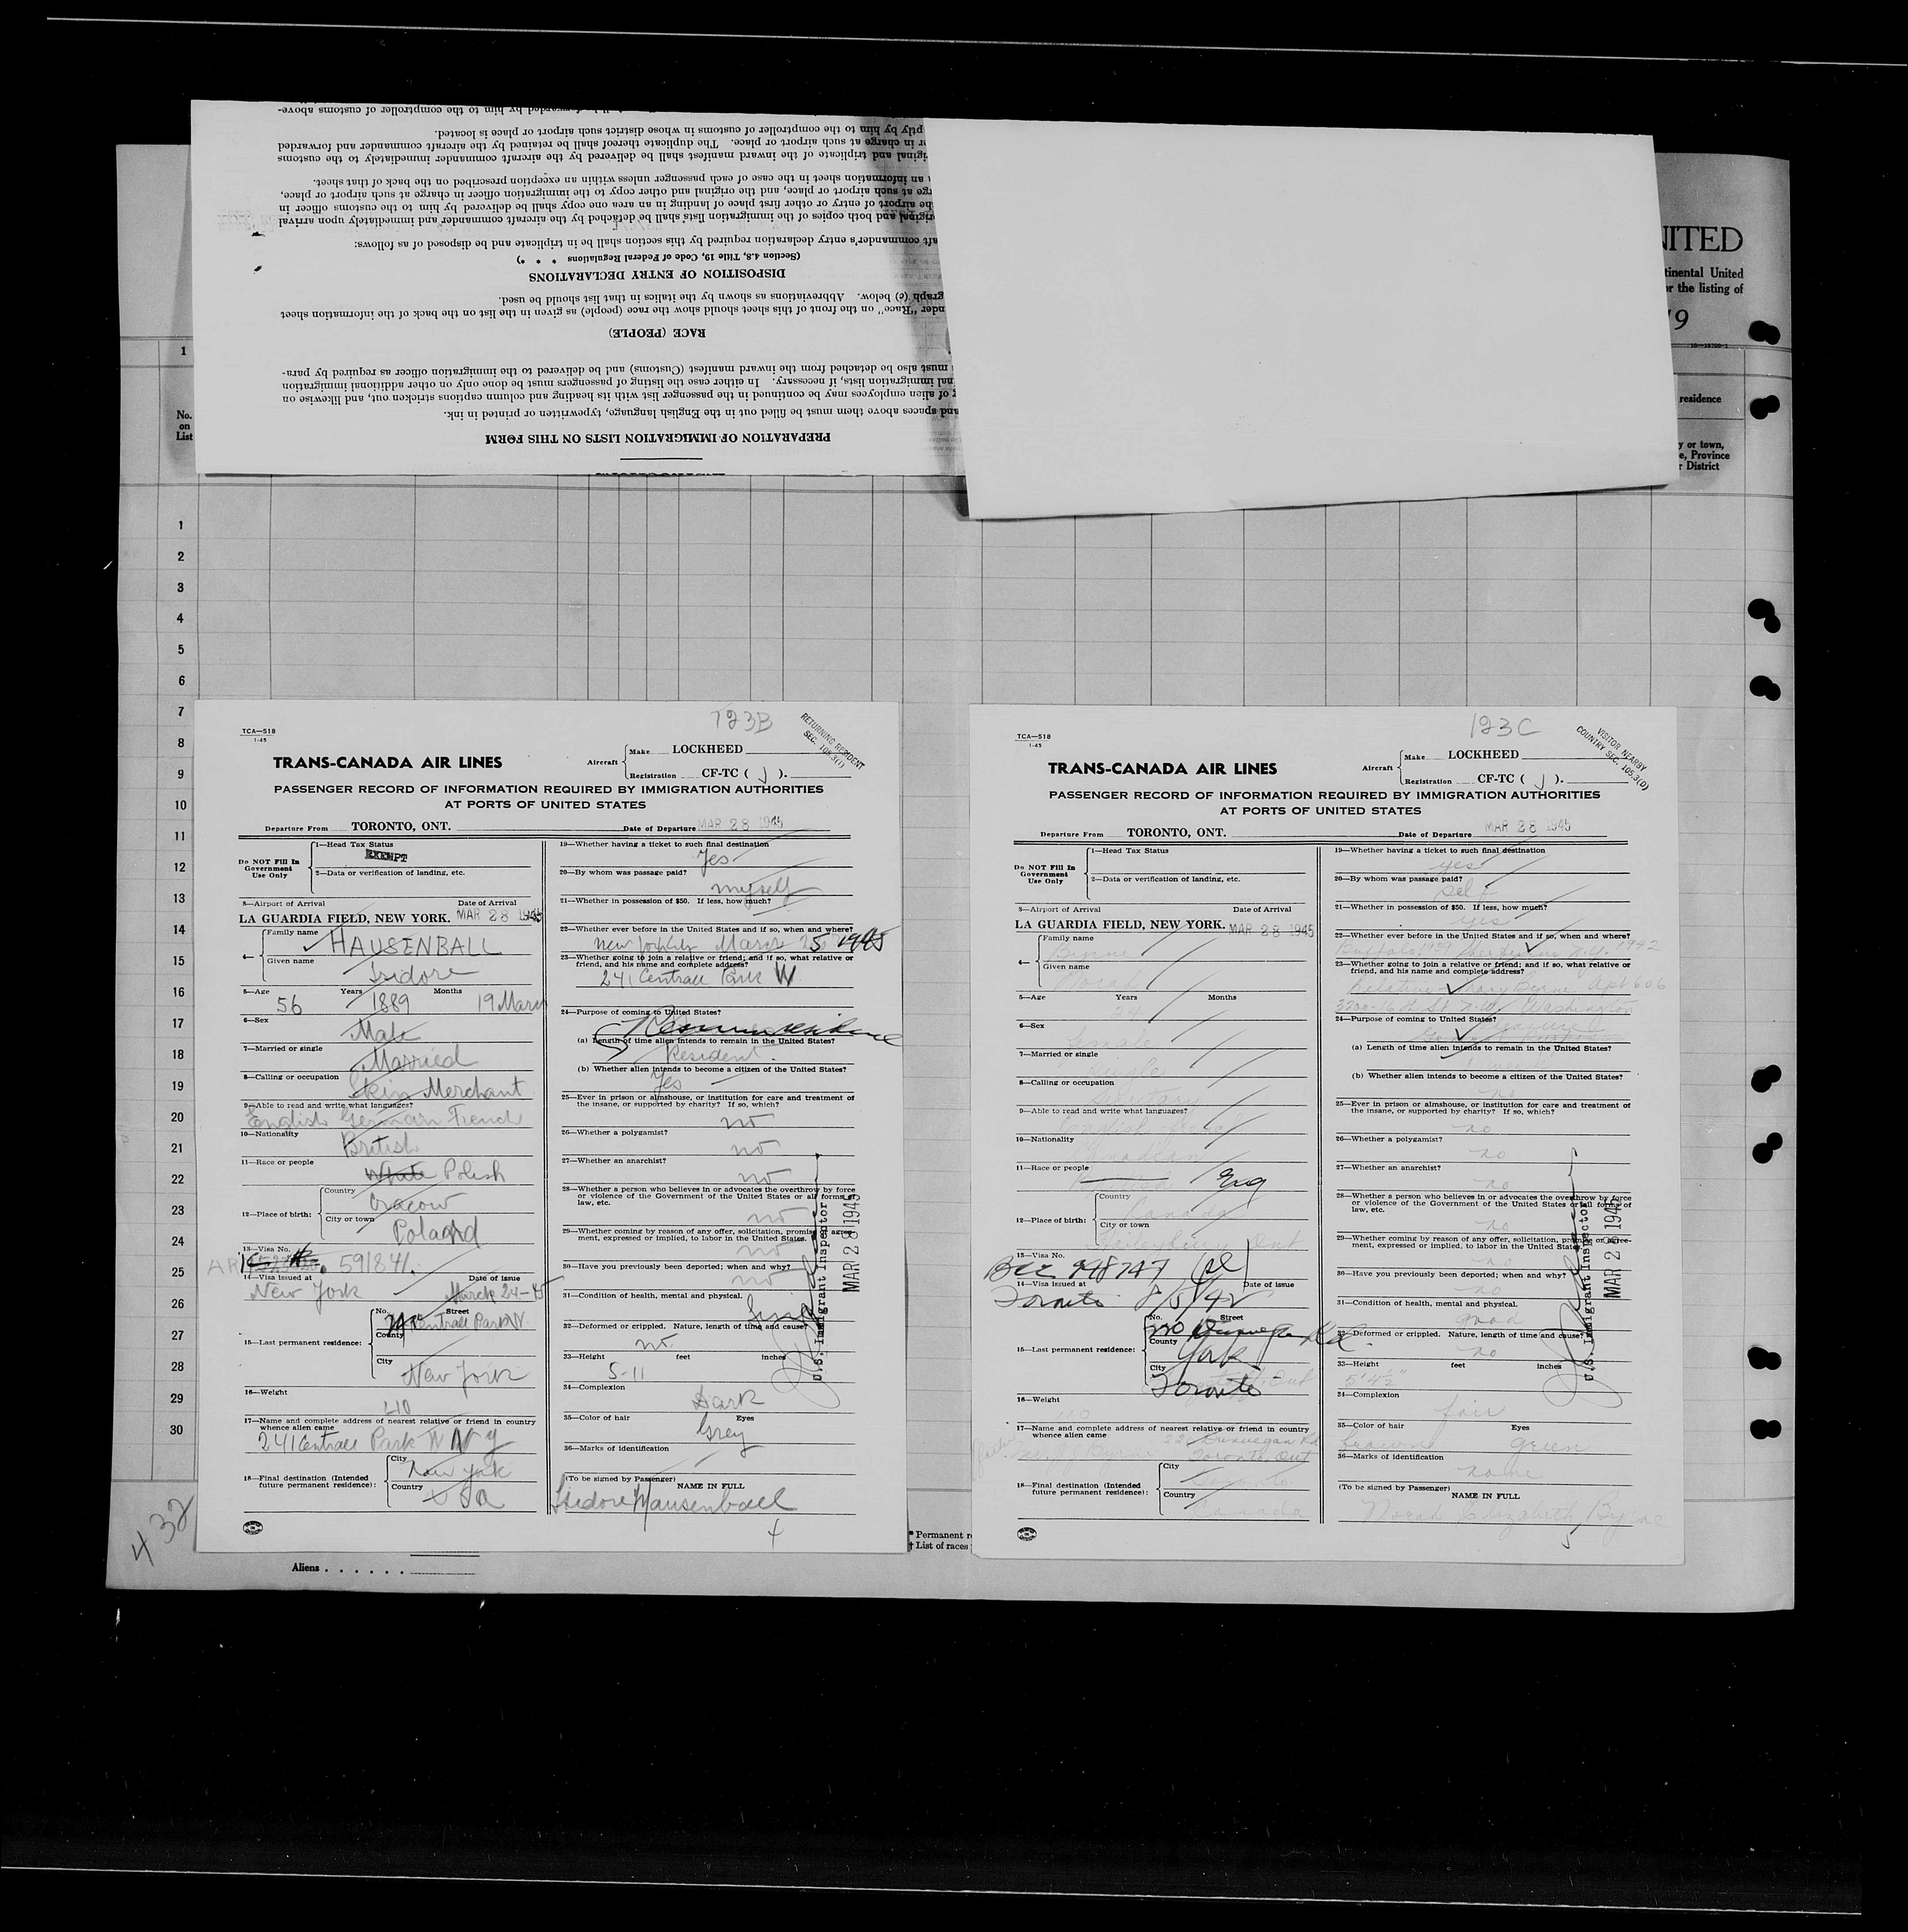 ptly by him to the comptroller of customs in whose district such airport or place is located.
er in charge at such airport or place. The duplicate thereof shall be retained by the aircraft commander and forwarded
iginal and triplicate of the inward manifest shall be delivered by the aircraft commander immediately to the customs
an information sheet in the case of each passenger unless within an exception prescribed on the back of that sheet.
rge at such airport or place, and the original and other copy to the immigration officer in charge at such airport or place,
he airport of entry or other first place of landing in an area one copy shall be delivered by him to the customs officer in
original and both copies of the immigration lists shall be detached by the aircraft commander and immediately upon arrival
aft commander's entry declaration required by this section shall be in triplicate and be disposed of as follows:
(Section 4.8, Title 19, Code of Federal Regulations * * *)
DISPOSITION OF ENTRY DECLARATIONS
graph (c) below. Abbreviations as shown by the italics in that list should be used.
nder "Race" on the front of this sheet should show the race (people) as given in the list on the back of the information sheet
RACE (PEOPLE)
must also be detached from the inward manifest (Customs) and be delivered to the immigration officer as required by para-
nal immigration lists, if necessary. In either case the listing of passengers must be done only on other additional immigration
g of alien employees may be continued in the passenger list with its heading and column captions stricken out, and likewise on
and spaces above them must be filled out in the English language, typewritten or printed in ink.
PREPARATION OF IMMIGRATION LISTS ON THIS FORM
NITED
tinental United
or the listing of
19
residence
y or town,
e, Province
r District
1
No.
on
List
1
2
3
4
5
6
7
8
9
10
11
12
13
14
15
16
17
18
19
20
21
22
23
24
25
26
27
28
29
30
432
Aliens . . . . . .
* Permanent re
† List of races
123B
RETURNING RESIDENT
SEC. 105.3(1)
TCA—518
1-45
TRANS-CANADA AIR LINES
Aircraft
Make LOCKHEED
Registration CF-TC ( J ).
PASSENGER RECORD OF INFORMATION REQUIRED BY IMMIGRATION AUTHORITIES
AT PORTS OF UNITED STATES
Departure From TORONTO, ONT. Date of Departure MAR 28 1945
Do NOT Fill In
Government
Use Only
1—Head Tax Status
EXEMPT
2—Data or verification of landing, etc.
3—Airport of Arrival Date of Arrival
LA GUARDIA FIELD, NEW YORK. MAR 28 1945
4— Family name HAUSENBALL
Given name Isidore
5—Age Years Months
56 1889 19 March
6—Sex Male
7—Married or single Married
8—Calling or occupation Skin Merchant
9—Able to read and write what languages?
English German French
10—Nationality British
11—Race or people White Polish
12—Place of birth: Country Cracow
City or town Poland
13—Visa No. 591841.
14—Visa issued at Date of issue
New York March 24-45
15—Last permanent residence: No. Street Centrall Park W.
County
City New York
16—Weight 210
17—Name and complete address of nearest relative or friend in country
whence alien came
241 Centrall Park W N Y
18—Final destination (Intended
future permanent residence):
City New York
Country USA
19—Whether having a ticket to such final destination
Yes
20—By whom was passage paid?
myself
21—Whether in possession of $50. If less, how much?
22—Whether ever before in the United States and if so, when and where?
New York March 25 1945
23—Whether going to join a relative or friend; and if so, what relative or
friend, and his name and complete address?
241 Centrall Park W
24—Purpose of coming to United States?
(a) Length of time alien intends to remain in the United States?
Resident.
(b) Whether alien intends to become a citizen of the United States?
Yes
25—Ever in prison or almshouse, or institution for care and treatment of
the insane, or supported by charity? If so, which?
no
26—Whether a polygamist?
no
27—Whether an anarchist?
no
28—Whether a person who believes in or advocates the overthrow by force
or violence of the Government of the United States or all forms of
law, etc.
no
29—Whether coming by reason of any offer, solicitation, promise or agree-
ment, expressed or implied, to labor in the United States.
no
30—Have you previously been deported; when and why?
no
31—Condition of health, mental and physical.
32—Deformed or crippled. Nature, length of time and cause?
no
33—Height feet inches
5-11
34—Complexion Dark
35—Color of hair Eyes
Grey
36—Marks of identification
(To be signed by Passenger) NAME IN FULL
Isidore Hausenball
4
U.S. Immigrant Inspector
MAR 28 1945
123C
VISITOR NEARBY
COUNTRY SEC. 105.3(D)
TCA—518
1-45
TRANS-CANADA AIR LINES
Aircraft
Make LOCKHEED
Registration CF-TC ( J ).
PASSENGER RECORD OF INFORMATION REQUIRED BY IMMIGRATION AUTHORITIES
AT PORTS OF UNITED STATES
Departure From TORONTO, ONT. Date of Departure MAR 28 1945
Do NOT Fill In
Government
Use Only
1—Head Tax Status
2—Data or verification of landing, etc.
3—Airport of Arrival Date of Arrival
LA GUARDIA FIELD, NEW YORK. MAR 28 1945
4— Family name Byrne
Given name Norah
5—Age Years Months
24
6—Sex female
7—Married or single single
8—Calling or occupation Secretary
9—Able to read and write what languages?
English
10—Nationality Canadian
11—Race or people Eng
12—Place of birth: Country Canada
City or town Haileybury Ont
13—Visa No. BCC 948747
14—Visa issued at Date of issue
Toronto 8/5/42
15—Last permanent residence: No. Street 220 Dunvegan Rd.
County York
City Toronto
16—Weight
17—Name and complete address of nearest relative or friend in country
whence alien came
Dunvegan Rd
Toronto, Ont
18—Final destination (Intended
future permanent residence):
City Toronto
Country Canada
19—Whether having a ticket to such final destination
yes
20—By whom was passage paid?
self
21—Whether in possession of $50. If less, how much?
yes
22—Whether ever before in the United States and if so, when and where?
Buffalo N.Y. 1942
23—Whether going to join a relative or friend; and if so, what relative or
friend, and his name and complete address?
Relative Mary Byrne Apt 606
3700-16th St. N.W. Washington
24—Purpose of coming to United States?
(a) Length of time alien intends to remain in the United States?
(b) Whether alien intends to become a citizen of the United States?
no
25—Ever in prison or almshouse, or institution for care and treatment of
the insane, or supported by charity? If so, which?
no
26—Whether a polygamist?
no
27—Whether an anarchist?
no
28—Whether a person who believes in or advocates the overthrow by force
or violence of the Government of the United States or all forms of
law, etc.
no
29—Whether coming by reason of any offer, solicitation, promise or agree-
ment, expressed or implied, to labor in the United States.
no
30—Have you previously been deported; when and why?
no
31—Condition of health, mental and physical.
good
32—Deformed or crippled. Nature, length of time and cause?
no
33—Height feet inches
5' 4½"
34—Complexion fair
35—Color of hair Eyes
brown green
36—Marks of identification
none
(To be signed by Passenger) NAME IN FULL
Norah Elizabeth Byrne
5
U.S. Immigrant Inspector
MAR 28 1945